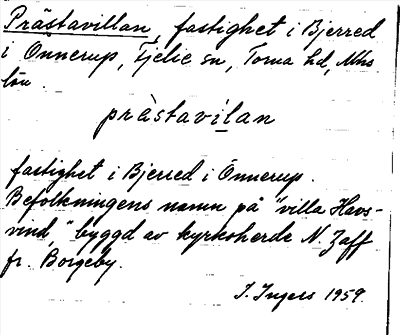 Prästavillan, fastighet i Bjerred
i Önnerup, Fjelie sn, Torna hd, Mhs
län.
prà̀stavìlan
fastighet i Bjerred i Önnerup.
Befolkningens namn på "villa Havs-
vind," byggd av kyrkoherde N. Zaff
fr. Borgeby.
I. Ingers 1959.